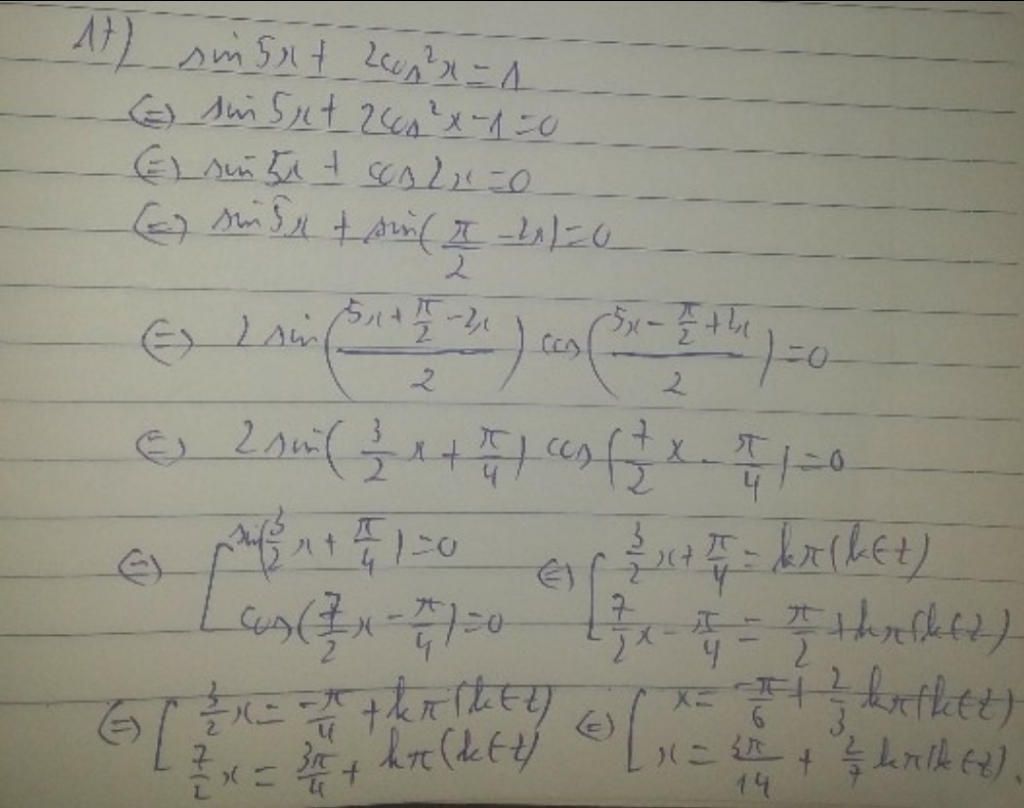 17) sin5x + 2cos²x = 1
(=) sin5x + 2cos²x - 1 = 0
(=) sin5x + cos2x = 0
(=) sin5x + sin(π/2 - 2x) = 0
(=) 2sin((5x + π/2 - 2x)/2) cos((5x - π/2 + 2x)/2) = 0
(=) 2sin(3/2 x + π/4) cos(7/2 x - π/4) = 0
(=) [ sin(3/2 x + π/4) = 0 (=) [ 3/2 x + π/4 = kπ (k∈Z)
cos(7/2 x - π/4) = 0 7/2 x - π/4 = π/2 + kπ (k∈Z)
(=) [ 3/2 x = -π/4 + kπ (k∈Z) (=) [ x = -π/6 + 2/3 kπ (k∈Z)
7/2 x = 3π/4 + kπ (k∈Z) x = 3π/14 + 2/7 kπ (k∈Z).